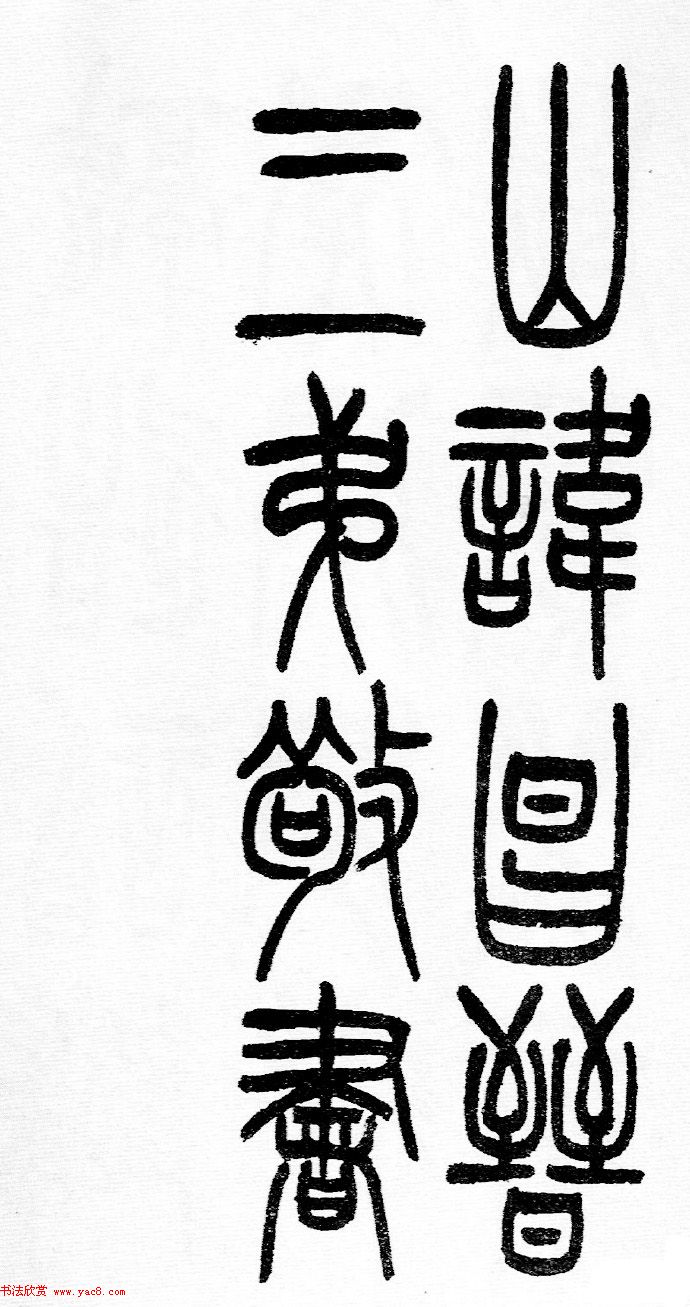 山諱昌晉
三弟敬書
书法欣赏 www.yac8.com